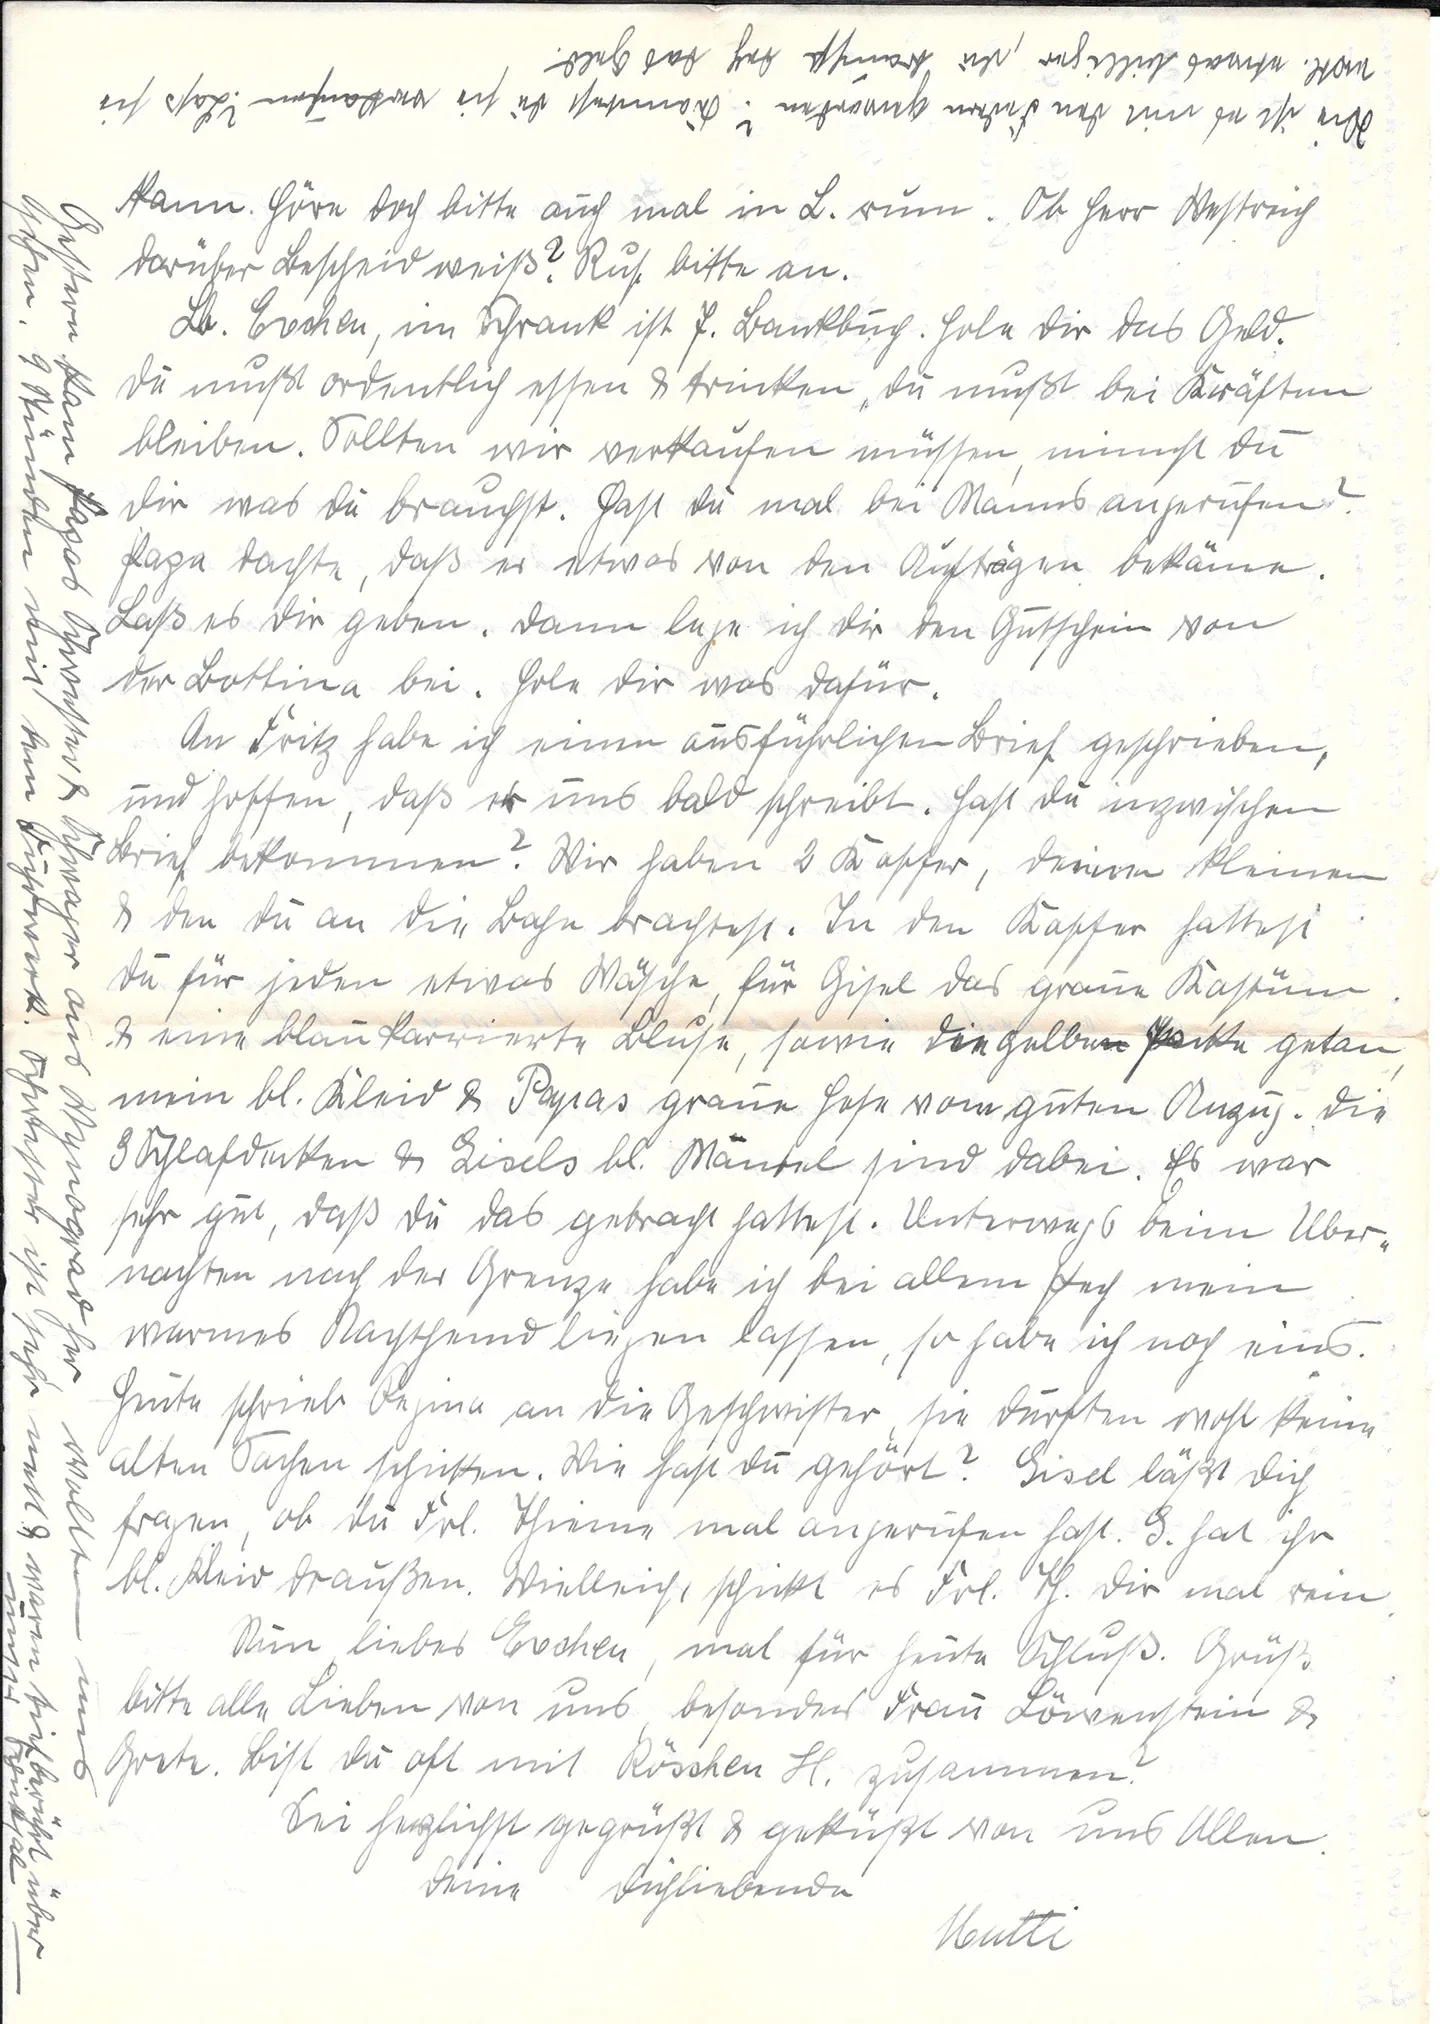 kann. Höre doch bitte auch mal in L. rum. Ob Herr Westreich
darüber Bescheid weiß? Ruf bitte an.
Lb. Evchen, im Schrank ist P. Bankbuch. Hole dir das Geld.
Du mußt ordentlich essen & trinken, du mußt bei Kräften
bleiben. Sollten wir verkaufen müssen, nimmst du
dir was du brauchst. Hast du mal bei Manns angerufen?
Papa dachte, daß er etwas von den Aufträgen bekäme.
Laß es dir geben. Dann lege ich dir den Gutschein von
der Bottina bei. Hole dir was dafür.
An Fritz habe ich einen ausführlichen Brief geschrieben,
und hoffen, daß er uns bald schreibt. Hast du inzwischen
Brief bekommen? Wir haben 2 Koffer, deinen kleinen
& den du an die Bahn brachtest. In den Koffer hattest
du für jeden etwas Wäsche, für Gisel das graue Kostüm
& eine blau karrierte Bluse, sowie die gelbe Jacke getan,
mein bl. Kleid & Papas graue Hose vom guten Anzug. Die
3 Schlafdecken & Gisels bl. Mantel sind dabei. Es war
sehr gut, daß du das gebracht hattest. Unterwegs beim Über-
nachten nach der Grenze habe ich bei allem Pech mein
warmes Nachthemd liegen lassen, so habe ich noch eins.
Heute schrieb Regina an die Geschwister, sie durften wohl keine
alten Sachen schicken. Wie hast du gehört? Gisel läßt dich
fragen, ob du Frl. Thieme mal angerufen hast. G. hat ihr
bl. Kleid draußen. Vielleicht schickt es Frl. Th. dir mal rein.
Nun liebes Evchen, mal für heute Schluß. Grüß
bitte alle Lieben von uns, besonders Frau Löwenstein &
Grete. Bist du oft mit Röschen H. zusammen?
Sei herzlichst gegrüßt & geküßt von uns Allen
Deine Dichliebende
Mutti
Gestern kam Papas Schwester & Schwager aus Wynograd her wollten uns
sehen. 9 Stunden weit beim Fuhrwerk. Schwester ist sehr nett & waren tief berührt über
unser Schicksal
Wie ist es mit den Federn geworden? Könntest du sie verkaufen? Lass sie
evtl. etwas billiger, du brauchst doch das Geld.